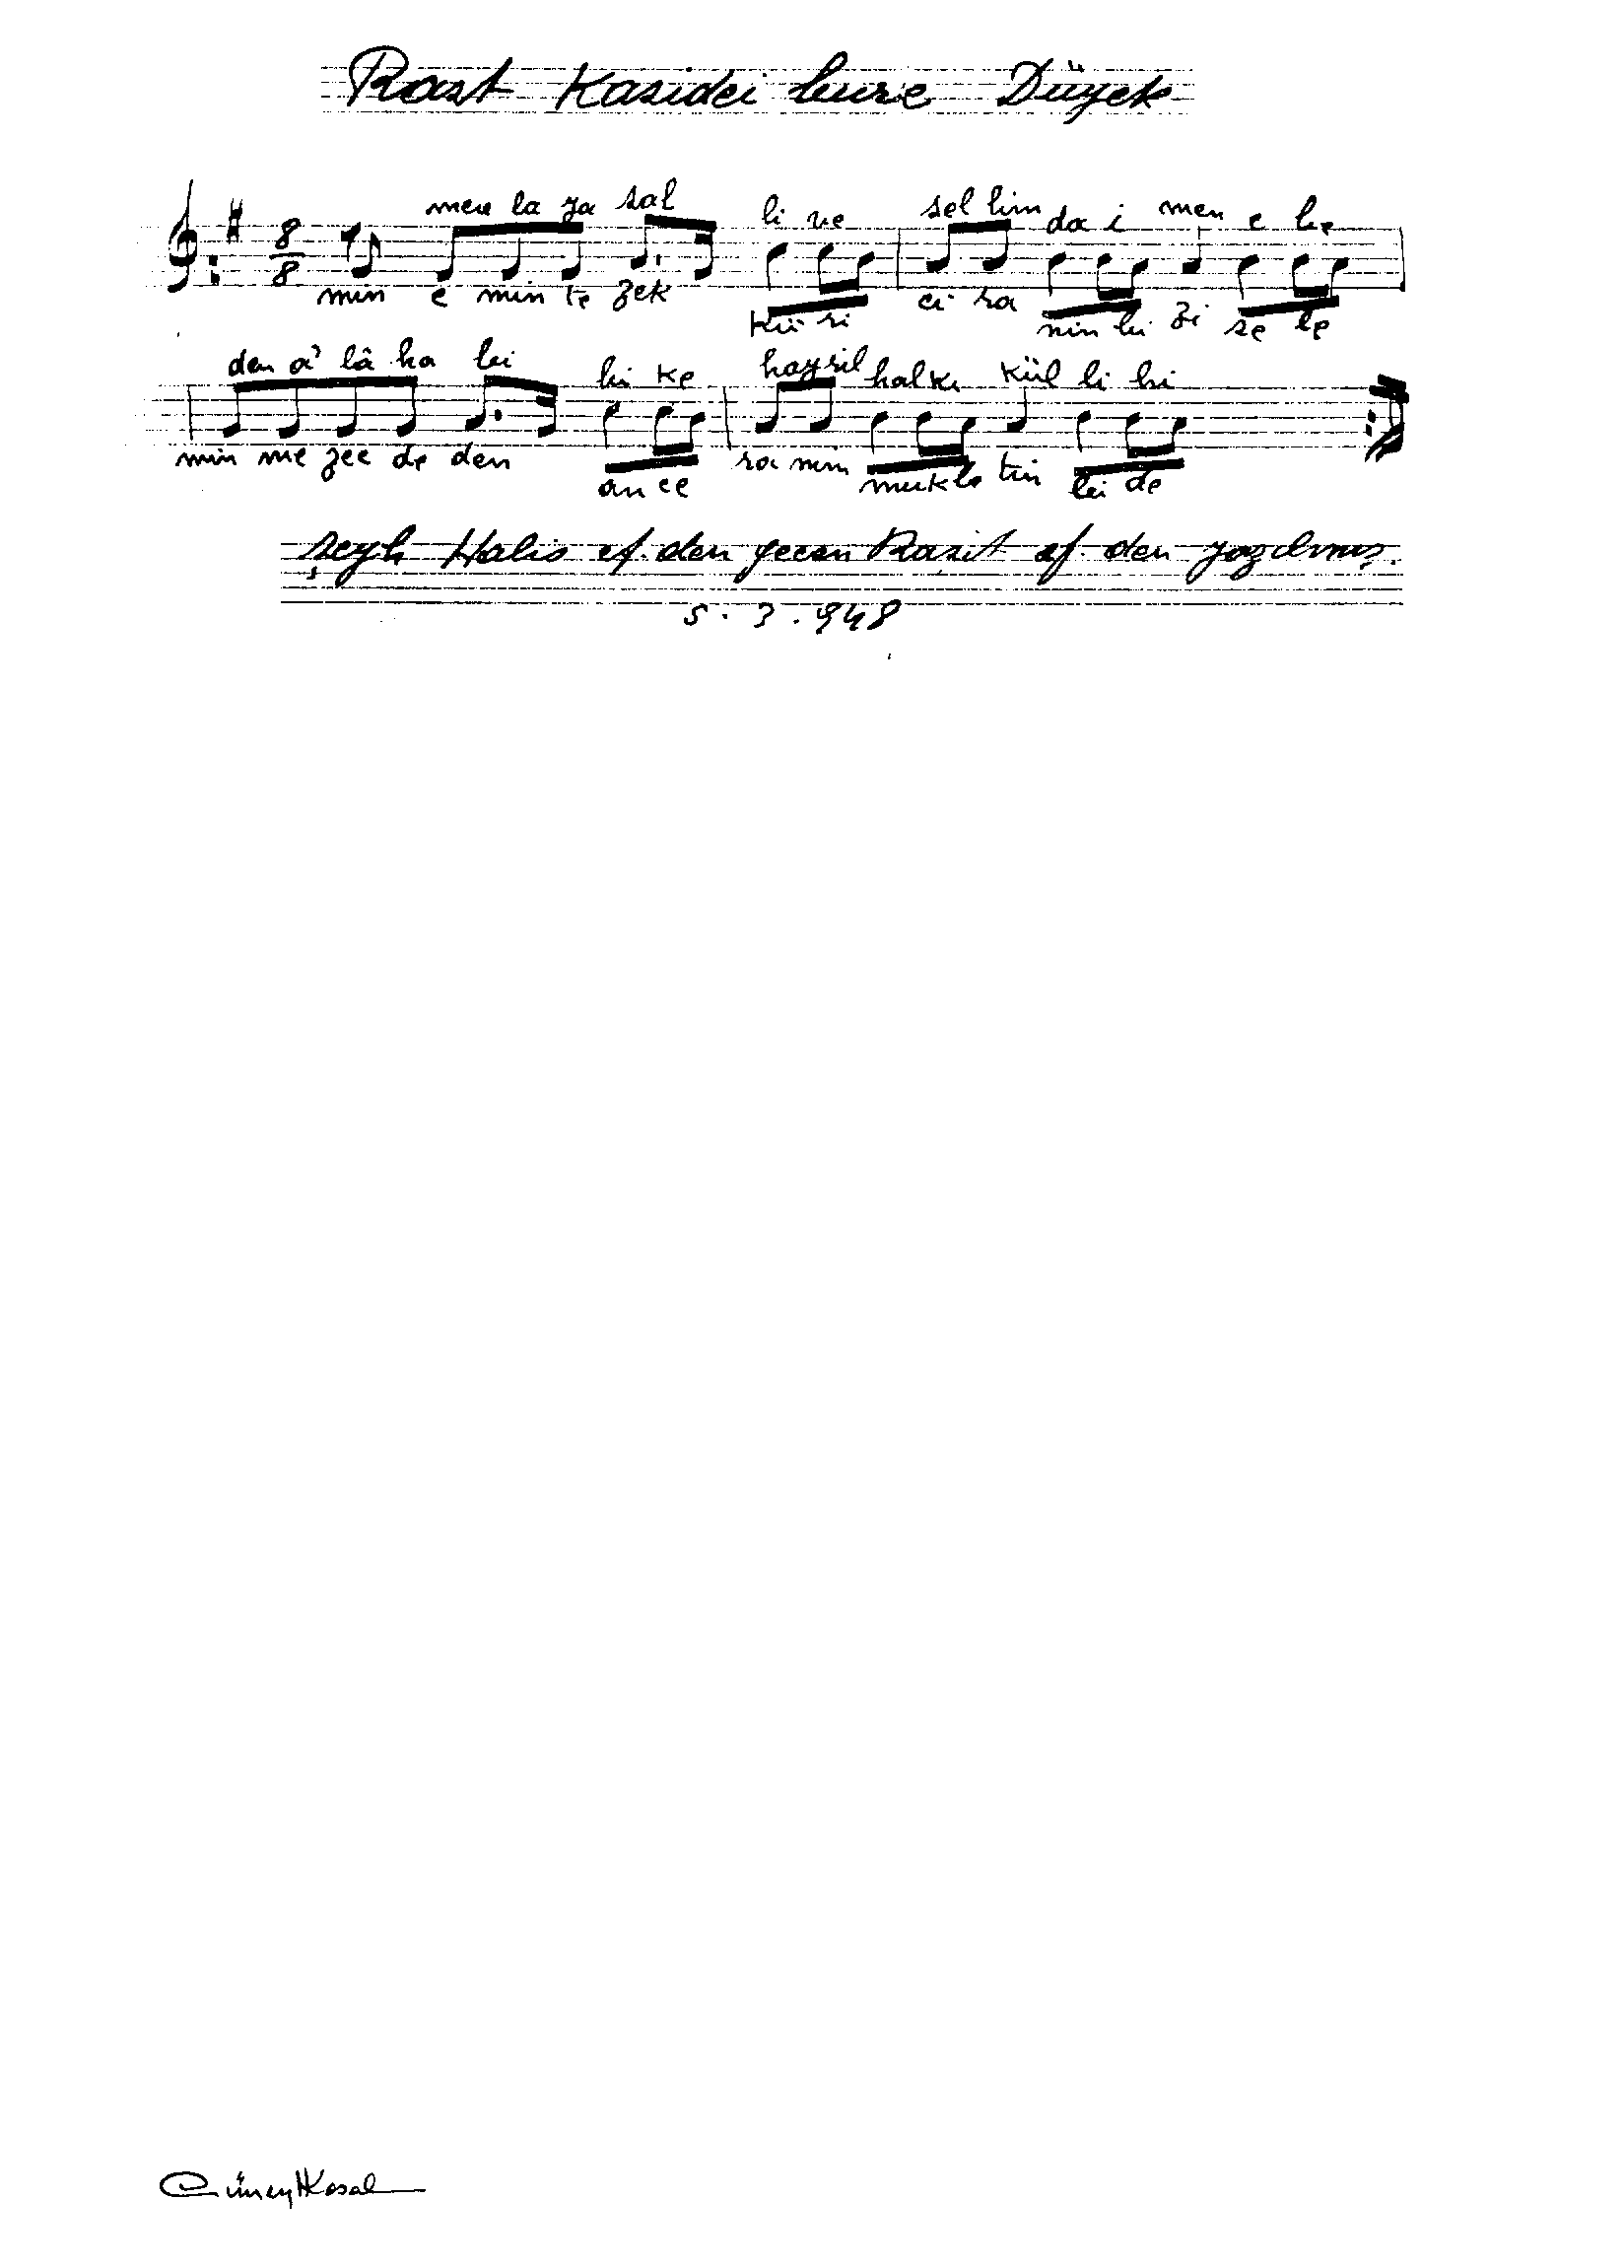 Rast Kasidei bure Düyek
8
8
mev la ya sal li ve sel lim da i men e be
min e min te zek kü ri ci ra nin bi zi se le
den a' lâ ha bi bi ke hayril halkı kül li hi
min me zec de den an ce ra min muk le tin bi de
şeyh Halis ef. den geçen Raşit ef. den yazılmış.
5.3.948
Cüneyt Kosal